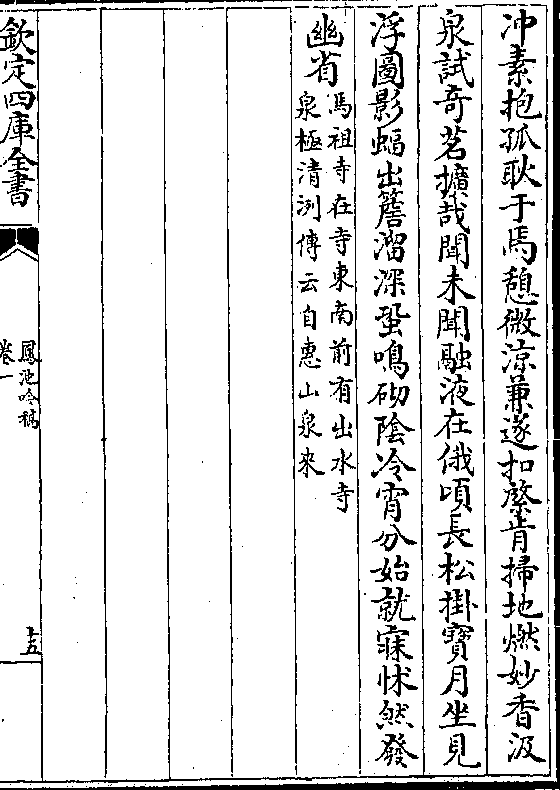 冲素抱孤耿于焉憩微涼兼遂扣綮肯掃地燃妙香汲
泉試奇茗擴哉聞未聞融液在俄頃長松掛寶月坐見
浮圖影蝠出簷溜深蛩鳴砌陰冷宵分始就寐怵然發
幽省
馬祖寺在寺東南前有出水寺
泉極清洌傳云自惠山泉来
欽定四庫全書
鳳池吟稿
卷一
十五